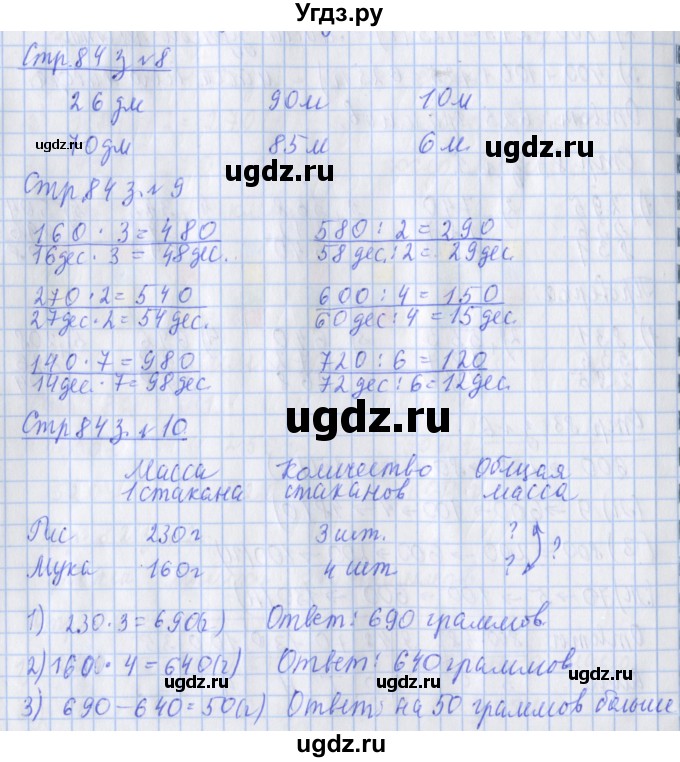 Угдз.ру
Стр.84 з №8
26 дм 90м 10м
70дм 85м 6м.
ugdz.ru ugdz.ru ugdz.ru
Стр.84 з.№9
160 · 3 = 480 580 : 2 = 290
16дес · 3 = 48дес. 58 дес. : 2 = 29дес.
270 · 2 = 540 600 : 4 = 150
27дес · 2 = 54дес. 60дес : 4 = 15дес.
140 · 7 = 980 720 : 6 = 120
14дес · 7 = 98дес 72дес : 6 = 12дес.
ugdz.ru
Стр.84 з. №10
Масса Количество Общая
1 стакана стаканов масса
ugdz.ru ugdz.ru ugdz.ru
Рис 230г 3 шт. ? ?
Мука 160г 4 шт ?
1) 230 · 3 = 690(г) Ответ: 690 граммов.
ugdz.ru
2) 160 · 4 = 640(г) Ответ: 640 граммов
ugdz.ru ugdz.ru ugdz.ru
3) 690 – 640 = 50(г) Ответ: на 50 граммов больше
ugdz.ru